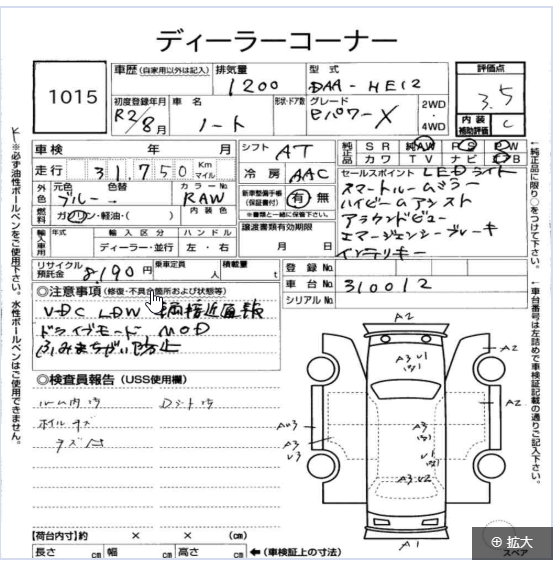 ディーラーコーナー
1015
車歴(自家用以外は記入)
排気量 1200
型式 DAA-HE12
評価点 3.5
初度登録年月 R2/8月
車名 ノート
形状・ドア数
グレード eパワーX
2WD・4WD
内装補助評価 C
車検 年 月
シフト AT
純正品 SR 純AW PS PW
カワ TV ナビ エアB
走行 31,750 Km マイル
冷房 AAC
セールスポイント LEDライト
スマートルームミラー
ハイビームアシスト
アラウンドビュー
エマージェンシーブレーキ
インテリキー
外色 元色 ブルー 色替
カラーNo. RAW
内装色
新車整備手帳(保証書付) 有・無
※書類と一緒に保管下さい。
燃料 ガソリン・軽油・( )
輸入車用 年式 輸入区分 ハンドル
ディーラー・並行 左・右
譲渡書類有効期限
月 日
リサイクル預託金 8190円
乗車定員 人
積載量 t
登録No.
車台No. 310012
シリアルNo.
◎注意事項(修復・不具合箇所および状態等)
VDC LDW 車両接近通報
ドライブモード MOD
ふみまちがい防止
◎検査員報告(USS使用欄)
ルーム内汚 Dシート汚
ホイルキズ
A2
A3 V1
A2
A2
AW3
A3
V3
A3
V1
A3 V2
A1
スペア
【荷台内寸】約 × × (cm)
長さ cm 幅 cm 高さ cm ←(車検証上の寸法)
※必ず油性ボールペンをご使用下さい。水性ボールペンはご使用できません。
純正品に限り○をつけて下さい。
車台番号は左詰めで車検証記載の通りご記入下さい。
拡大